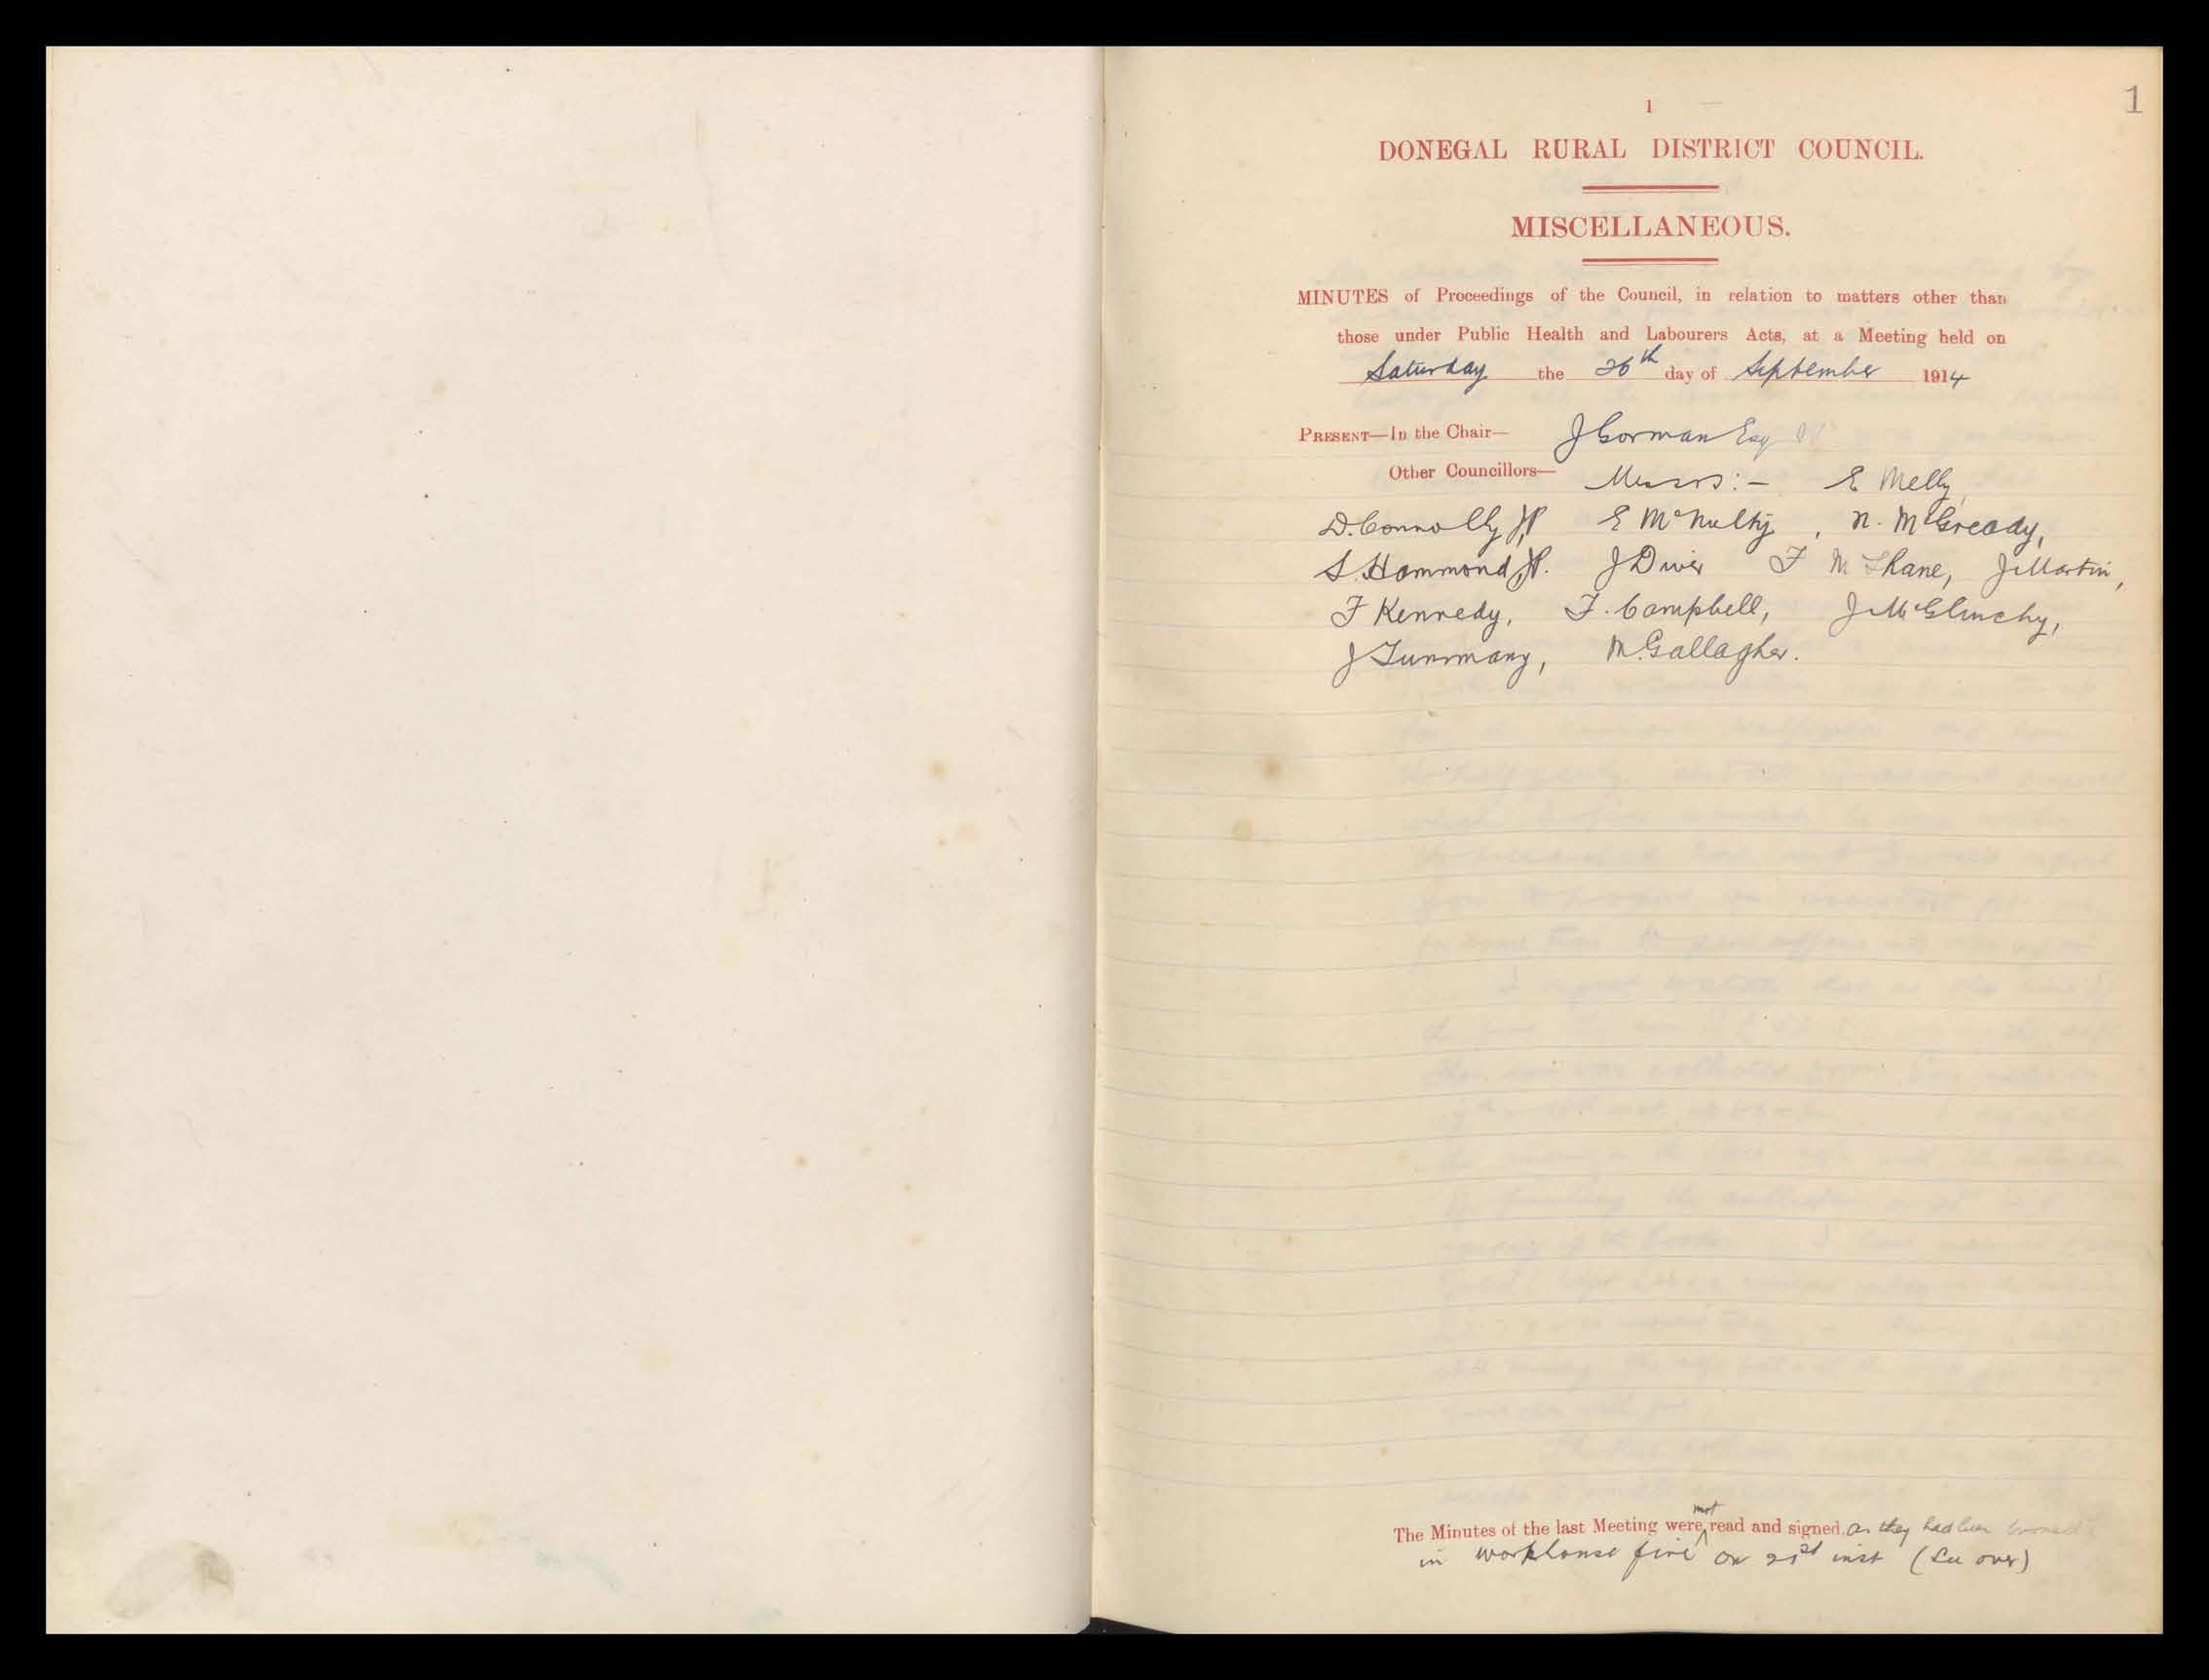 1
1
DONEGAL RURAL DISTRICT COUNCIL.
MISCELLANEOUS.
MINUTES of Proceedings of the Council, in relation to matters other than
those under Public Health and Labourers Acts, at a Meeting held on
Saturday the 26th day of September 1914
PRESENT—In the Chair— J Gorman Esq
Other Councillors— Messrs:- E Melly,
D. Connolly JP, E McNulty, N. McGready,
S. Hammond JP. J Diver F McShane, J Martin,
F Kennedy, F. Campbell, J McGlinchy,
J Tummany, M. Gallagher.
The Minutes of the last Meeting were not read and signed, as they had been burned
in workhouse fire on 21st inst (See over)